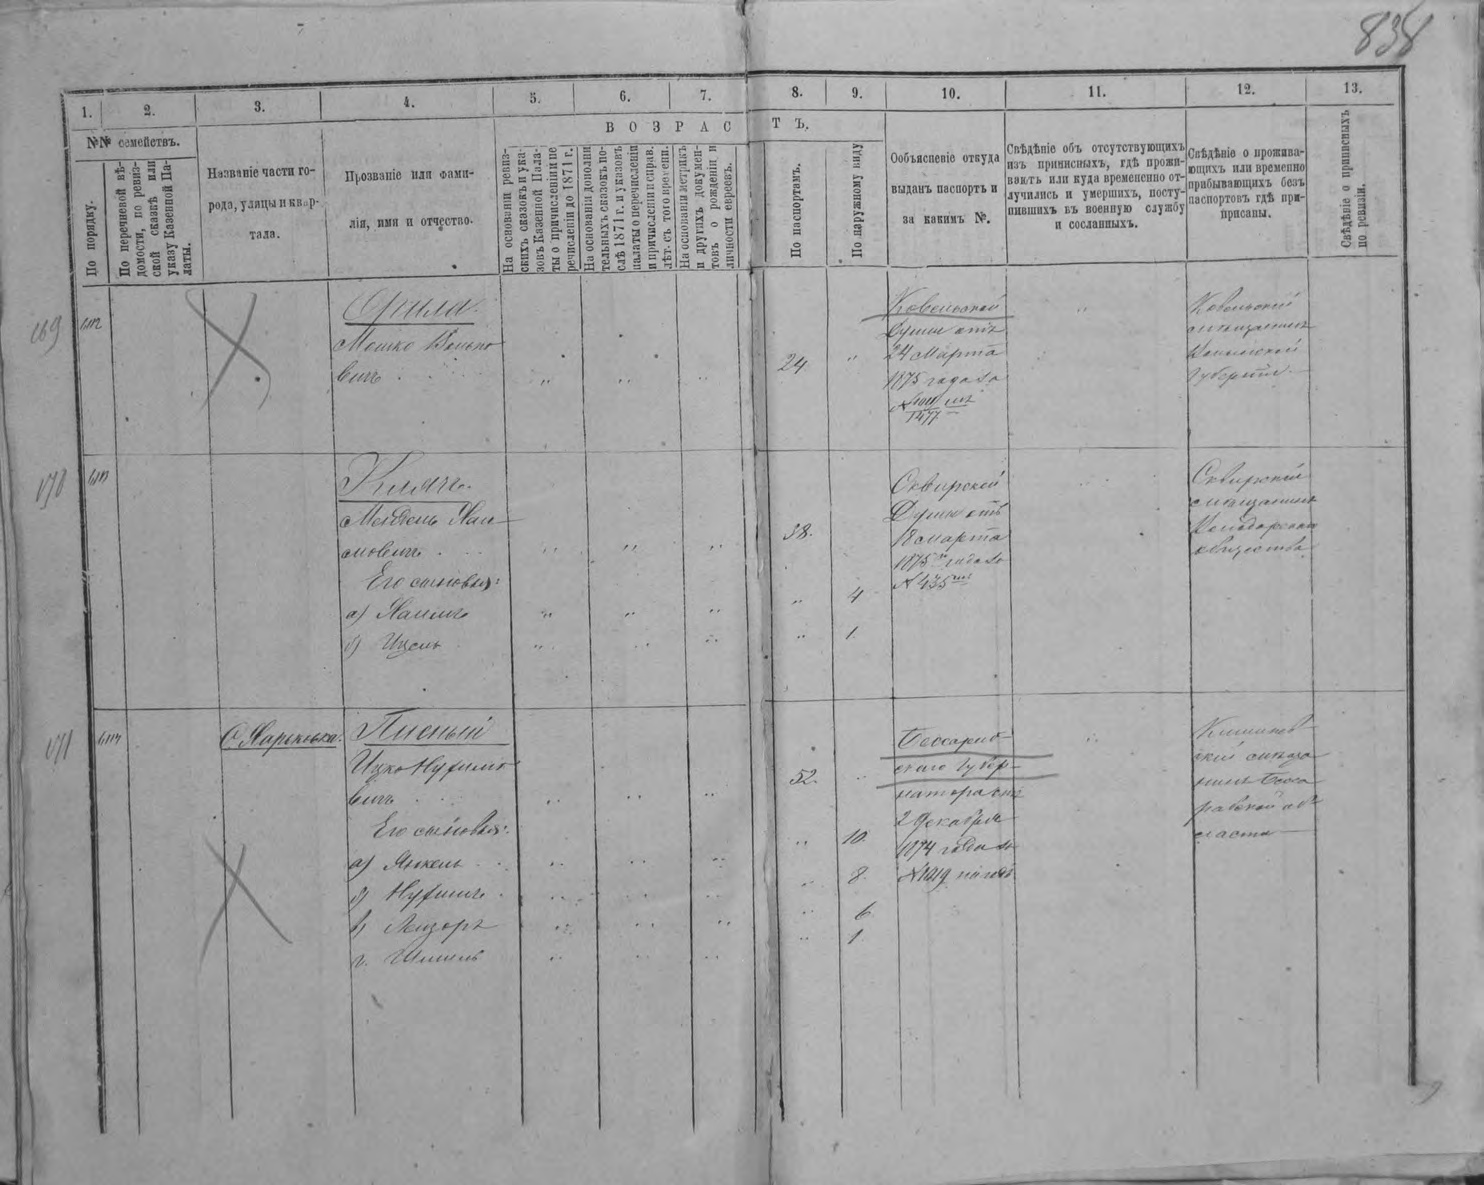 838
1. 2. 3. 4. 5. 6. 7. 8. 9. 10. 11. 12. 13.
№№ семействъ.
По порядку.
По перечневой вѣ-
домости, по ревиз-
ской сказкѣ или
указу Казенной Па-
латы.
Названіе части го-
рода, улицы и квар-
тала.
Прозваніе или фами-
лія, имя и отчество.
ВОЗРАСТЪ.
На основаніи ревиз-
скихъ сказокъ и ука-
зовъ Казенной Пала-
ты о причисленіи и пе
речисленіи до 1871 г.
На основаніи дополни
тельныхъ сказокъ по-
слѣ 1871 г. и указовъ
палаты о перечисленіи
и причисленіи и справ.
лѣт. съ того времени.
На основаніи метрикъ
и другихъ докумен-
товъ о рожденіи и
личности евреевъ.
По паспортамъ.
По наружному виду
Ообъясненіе откуда
выданъ паспортъ и
за какимъ №.
Свѣдѣніе объ отсутствующихъ
изъ приписныхъ, гдѣ прожи-
ваютъ или куда временно от-
лучились и умершихъ, посту-
пившихъ въ военную службу
и сосланныхъ.
Свѣдѣніе о прожива-
ющихъ или временно
прибывающихъ безъ
паспортовъ гдѣ при-
писаны.
Свѣдѣніе о приписныхъ
по ревизіи.
169
Мошко Волько
вичъ
24
Ковельской
Думы отъ
24 Марта
1875 года за
Ковельскій
мѣщанинъ
Волынской
Губерніи
170
Хаи
мовичъ
Его сыновья:
а) Хаимъ
б) Ицель
38.
4
1
Сквирской
Думы отъ
18 марта
1875 года за
№ 435
Сквирскій
мѣщанинъ
общества
171
Писный
Ицко Нухимо
вичъ
Его сыновья:
а) Янкель
б) Нухимъ
в) Лизоръ
г. Шмиль
52.
10.
8.
6
1
Бессараб
скаго Губер-
натора отъ
2 Декабря
1874 года за
№ 1019
Кишинев
скій мѣща
нинъ Бесса
рабской об
ласти